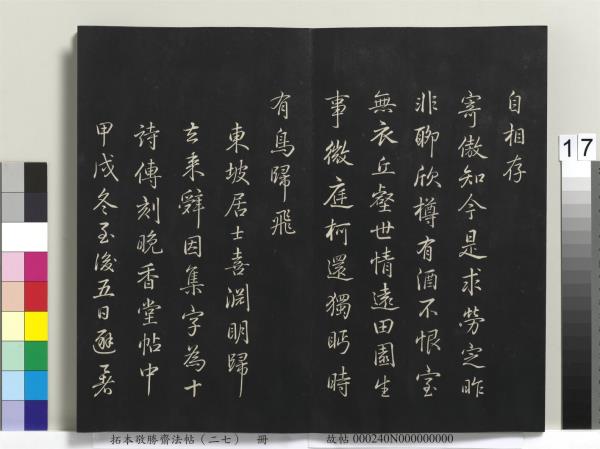 自相存
寄傲知今是求勞定昨
非聊欣樽有酒不恨室
無衣丘壑世情遠田園生
事微庭柯還獨眄時
有鳥歸飛
東坡居士喜淵明歸
去来辭因集字為十
詩傳刻晚香堂帖中
甲戌冬至後五日邀暑
17
拓本敬勝齋法帖（二七） 冊
故帖 000240N000000000